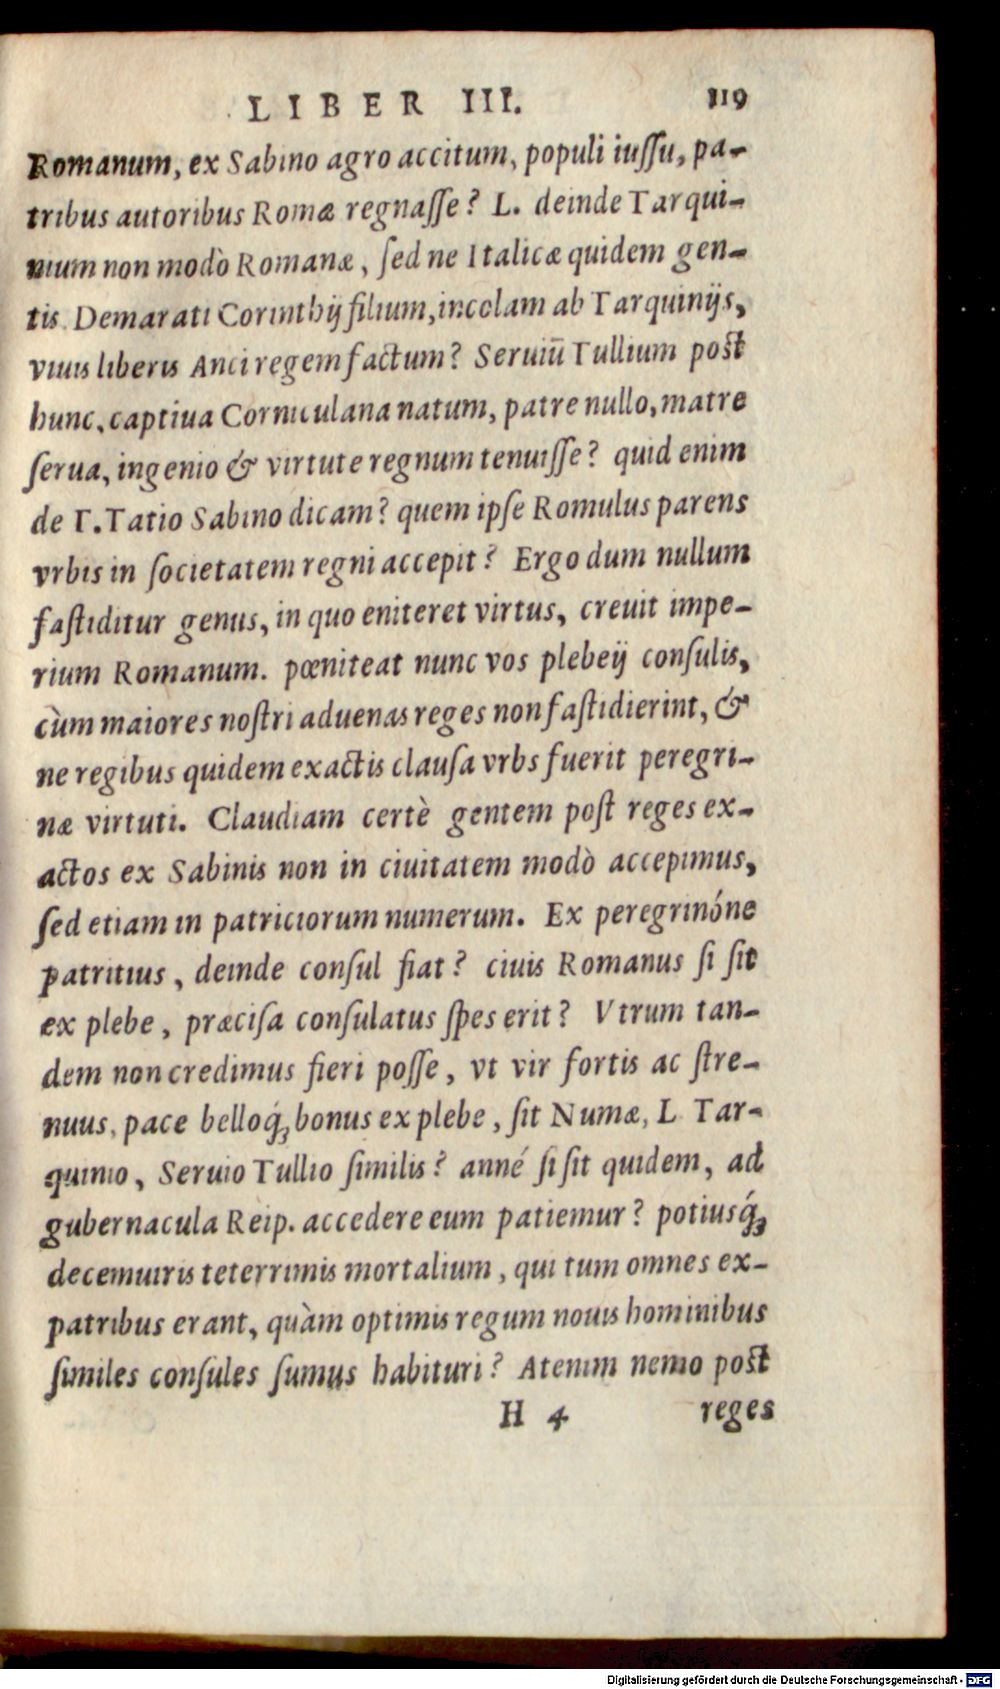 LIBER III. 119
Romanum, ex Sabino agro accitum, populi iuſſu, pa-
tribus autoribus Romæ regnaſſe? L. deinde Tarqui-
nium non modò Romanæ, ſed ne Italicæ quidem gen-
tis Demarati Corinthij filium, incolam ab Tarquinijs,
viuis liberis Anci regem factum? Seruiũ Tullium poſt
hunc, captiua Corniculana natum, patre nullo, matre
ſerua, ingenio & virtute regnum tenuiſſe? quid enim
de T. Tatio Sabino dicam? quem ipſe Romulus parens
vrbis in ſocietatem regni accepit? Ergo dum nullum
faſtiditur genus, in quo eniteret virtus, creuit impe-
rium Romanum. pœniteat nunc vos plebeij conſulis,
cùm maiores noſtri aduenas reges non faſtidierint, &
ne regibus quidem exactis clauſa vrbs fuerit peregri-
næ virtuti. Claudiam certè gentem poſt reges ex-
actos ex Sabinis non in ciuitatem modò accepimus,
ſed etiam in patriciorum numerum. Ex peregrinóne
patritius, deinde conſul fiat? ciuis Romanus ſi ſit
ex plebe, præciſa conſulatus ſpes erit? Vtrum tan-
dem non credimus fieri poſſe, vt vir fortis ac ſtre-
nuus, pace belloq́ꝫ bonus ex plebe, ſit Numæ, L Tar-
quinio, Seruio Tullio ſimilis? anné ſi ſit quidem, ad
gubernacula Reip. accedere eum patiemur? potiusq́ꝫ
decemuiris teterrimis mortalium, qui tum omnes ex-
patribus erant, quàm optimis regum nouis hominibus
ſimiles conſules ſumus habituri? Atenim nemo poſt
H 4 reges
Digitalisierung gefördert durch die Deutsche Forschungsgemeinschaft - DFG